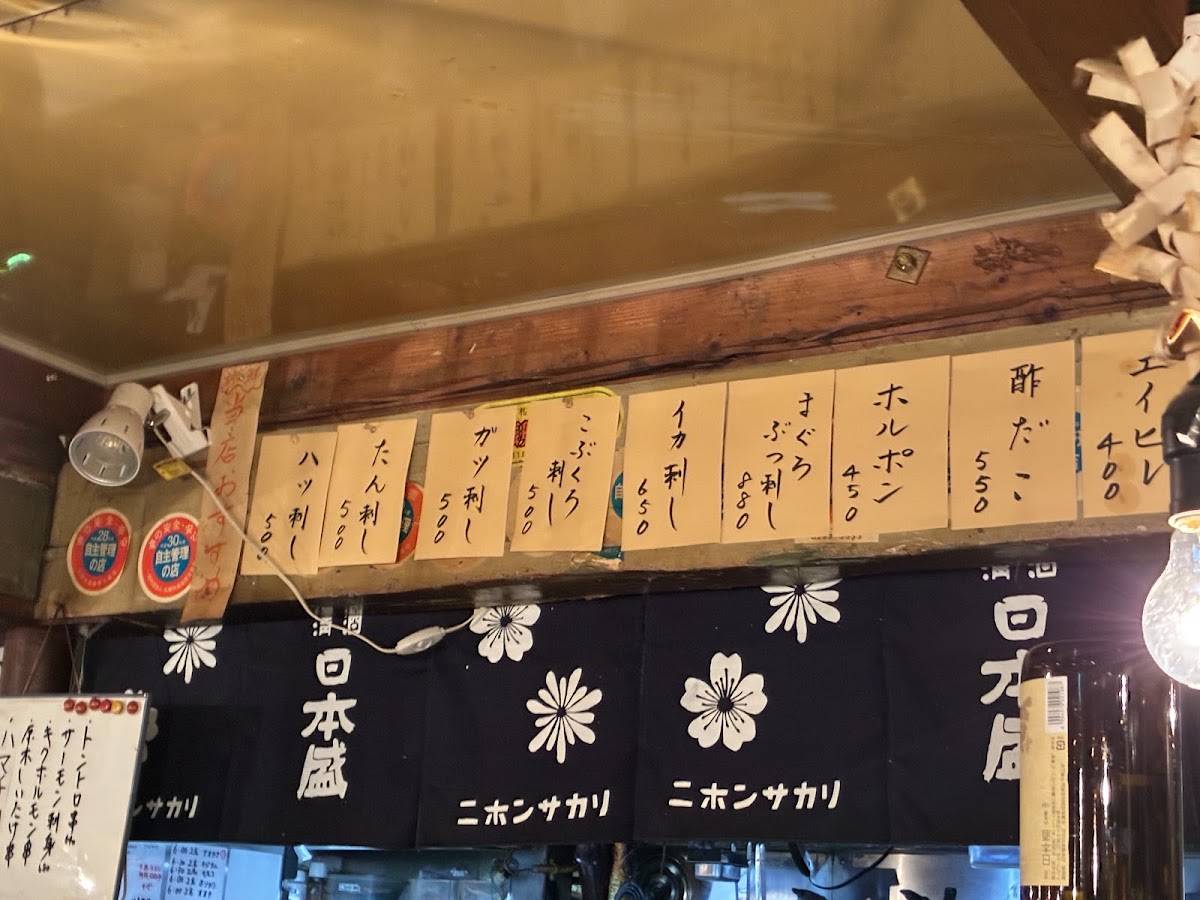 エイヒレ
400
酢だこ
550
ホルポン
450
まぐろ
ぶつ刺し
880
イカ刺し
650
こぶくろ
刺し
500
ガツ刺し
500
たん刺し
500
ハツ刺し
500
当店おすすめ
28
自主管理
の店
30
自主管理
の店
清酒
日本盛
ニホンサカリ
ニホンサカリ
日本盛
ホンサカリ
・トントロ串
・サーモン刺身
・キクホルモン串
・原木しいたけ串